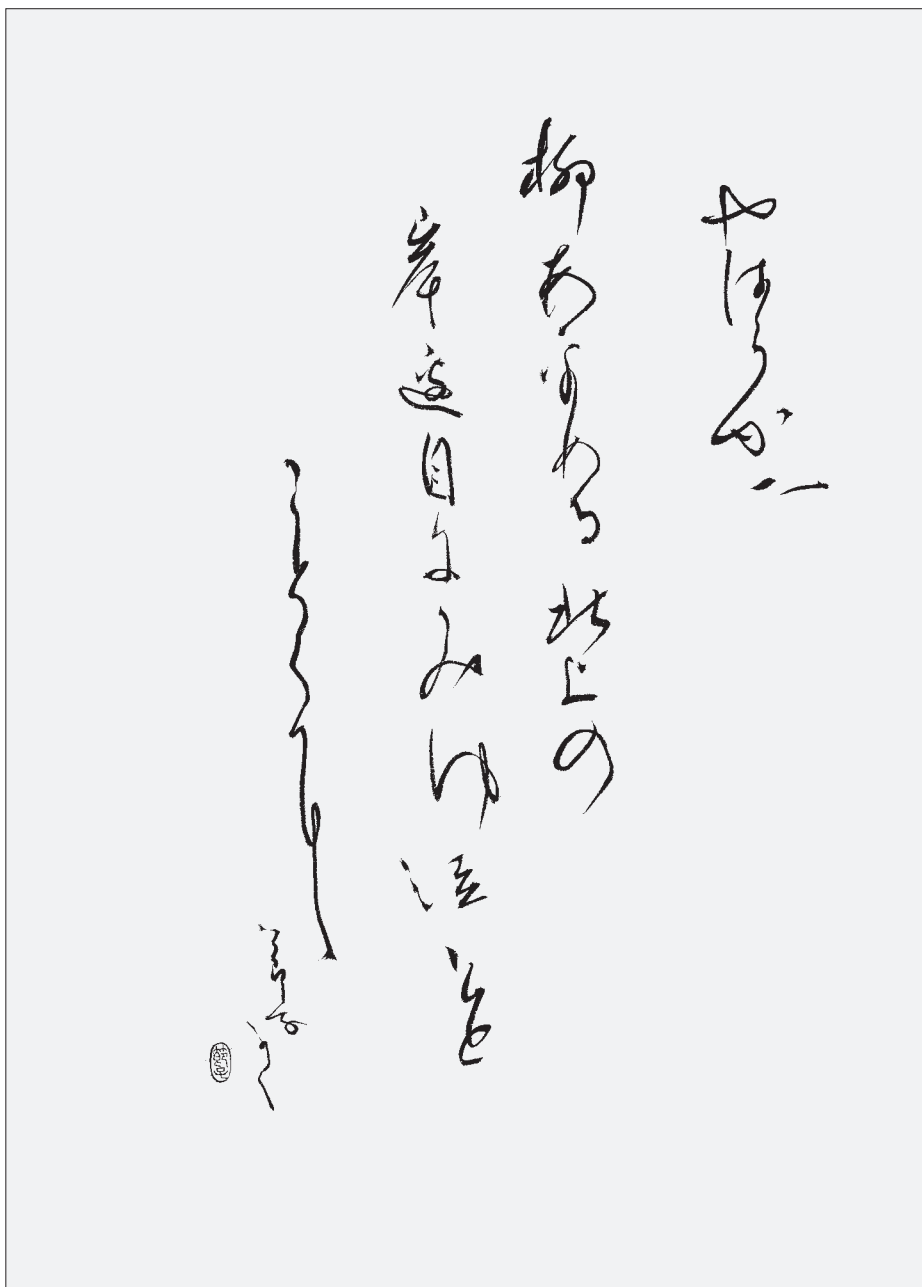 やはらかに
柳あをめる北上の
岸邊目にみゆ泣けと
ごとくに
節子かく